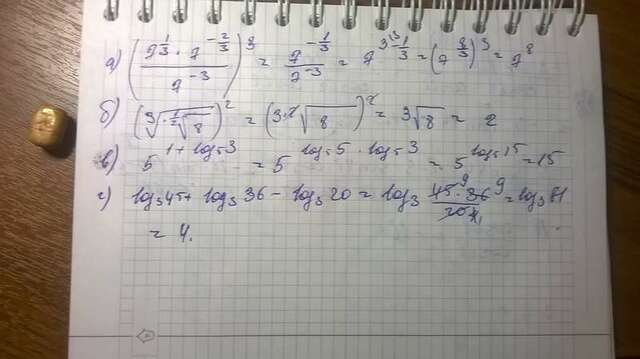 а) (7^{1/3} · 7^{-2/3} / 7^{-3})^3 = 7^{-1/3} / 7^{-3} = 7^{3-1/3} = (7^{8/3})^3 = 7^8
б) (∛√8)^2 = (3·2√8)^2 = ∛8 = 2
в) 5^{1+log_5 3} = 5^{log_5 5 · log_5 3} = 5^{log_5 15} = 15
г) log_3 45 + log_3 36 - log_3 20 = log_3 45·36/20 = log_3 81
= 4.